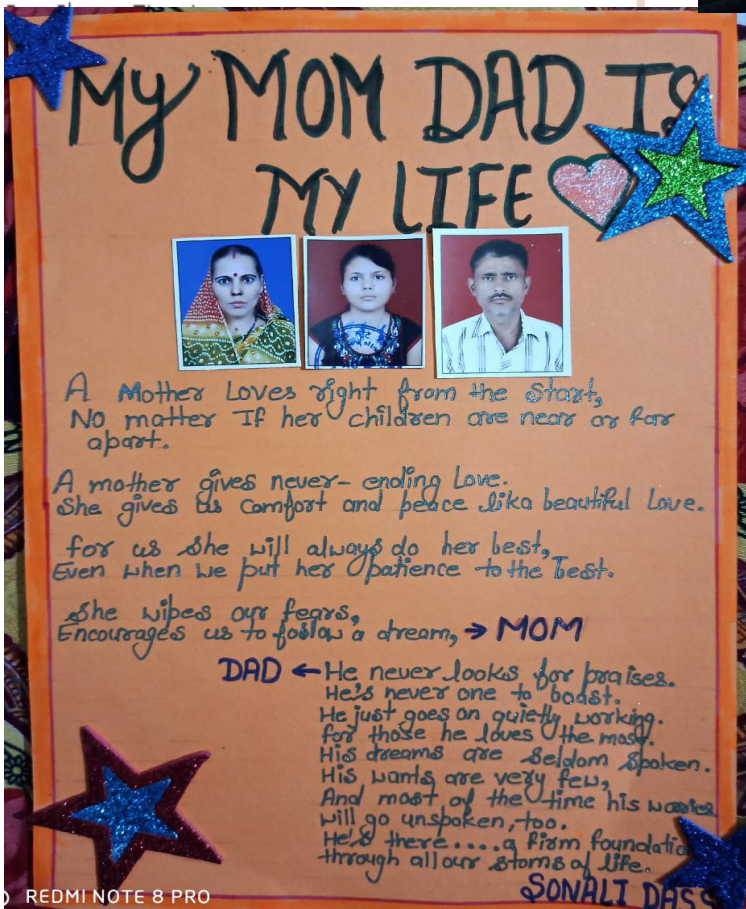 My MOM DAD IS
MY LIFE
A Mother Loves right from the start,
No matter If her children are near or far
apart.
A mother gives never-ending Love.
She gives us comfort and peace lika beautiful Love.
for us she will always do her best,
Even when we put her patience to the Test.
She wipes our fears,
Encourages us to follow a dream, → MOM
DAD ← He never looks for praises.
He's never one to boast.
He just goes on quietly working.
for those he loves the most.
His dreams are seldom spoken.
His wants are very few,
And most of the time his worries
will go unspoken, too.
He's there....a firm foundatio
through all our stoms of life.
SONALI DASS
REDMI NOTE 8 PRO